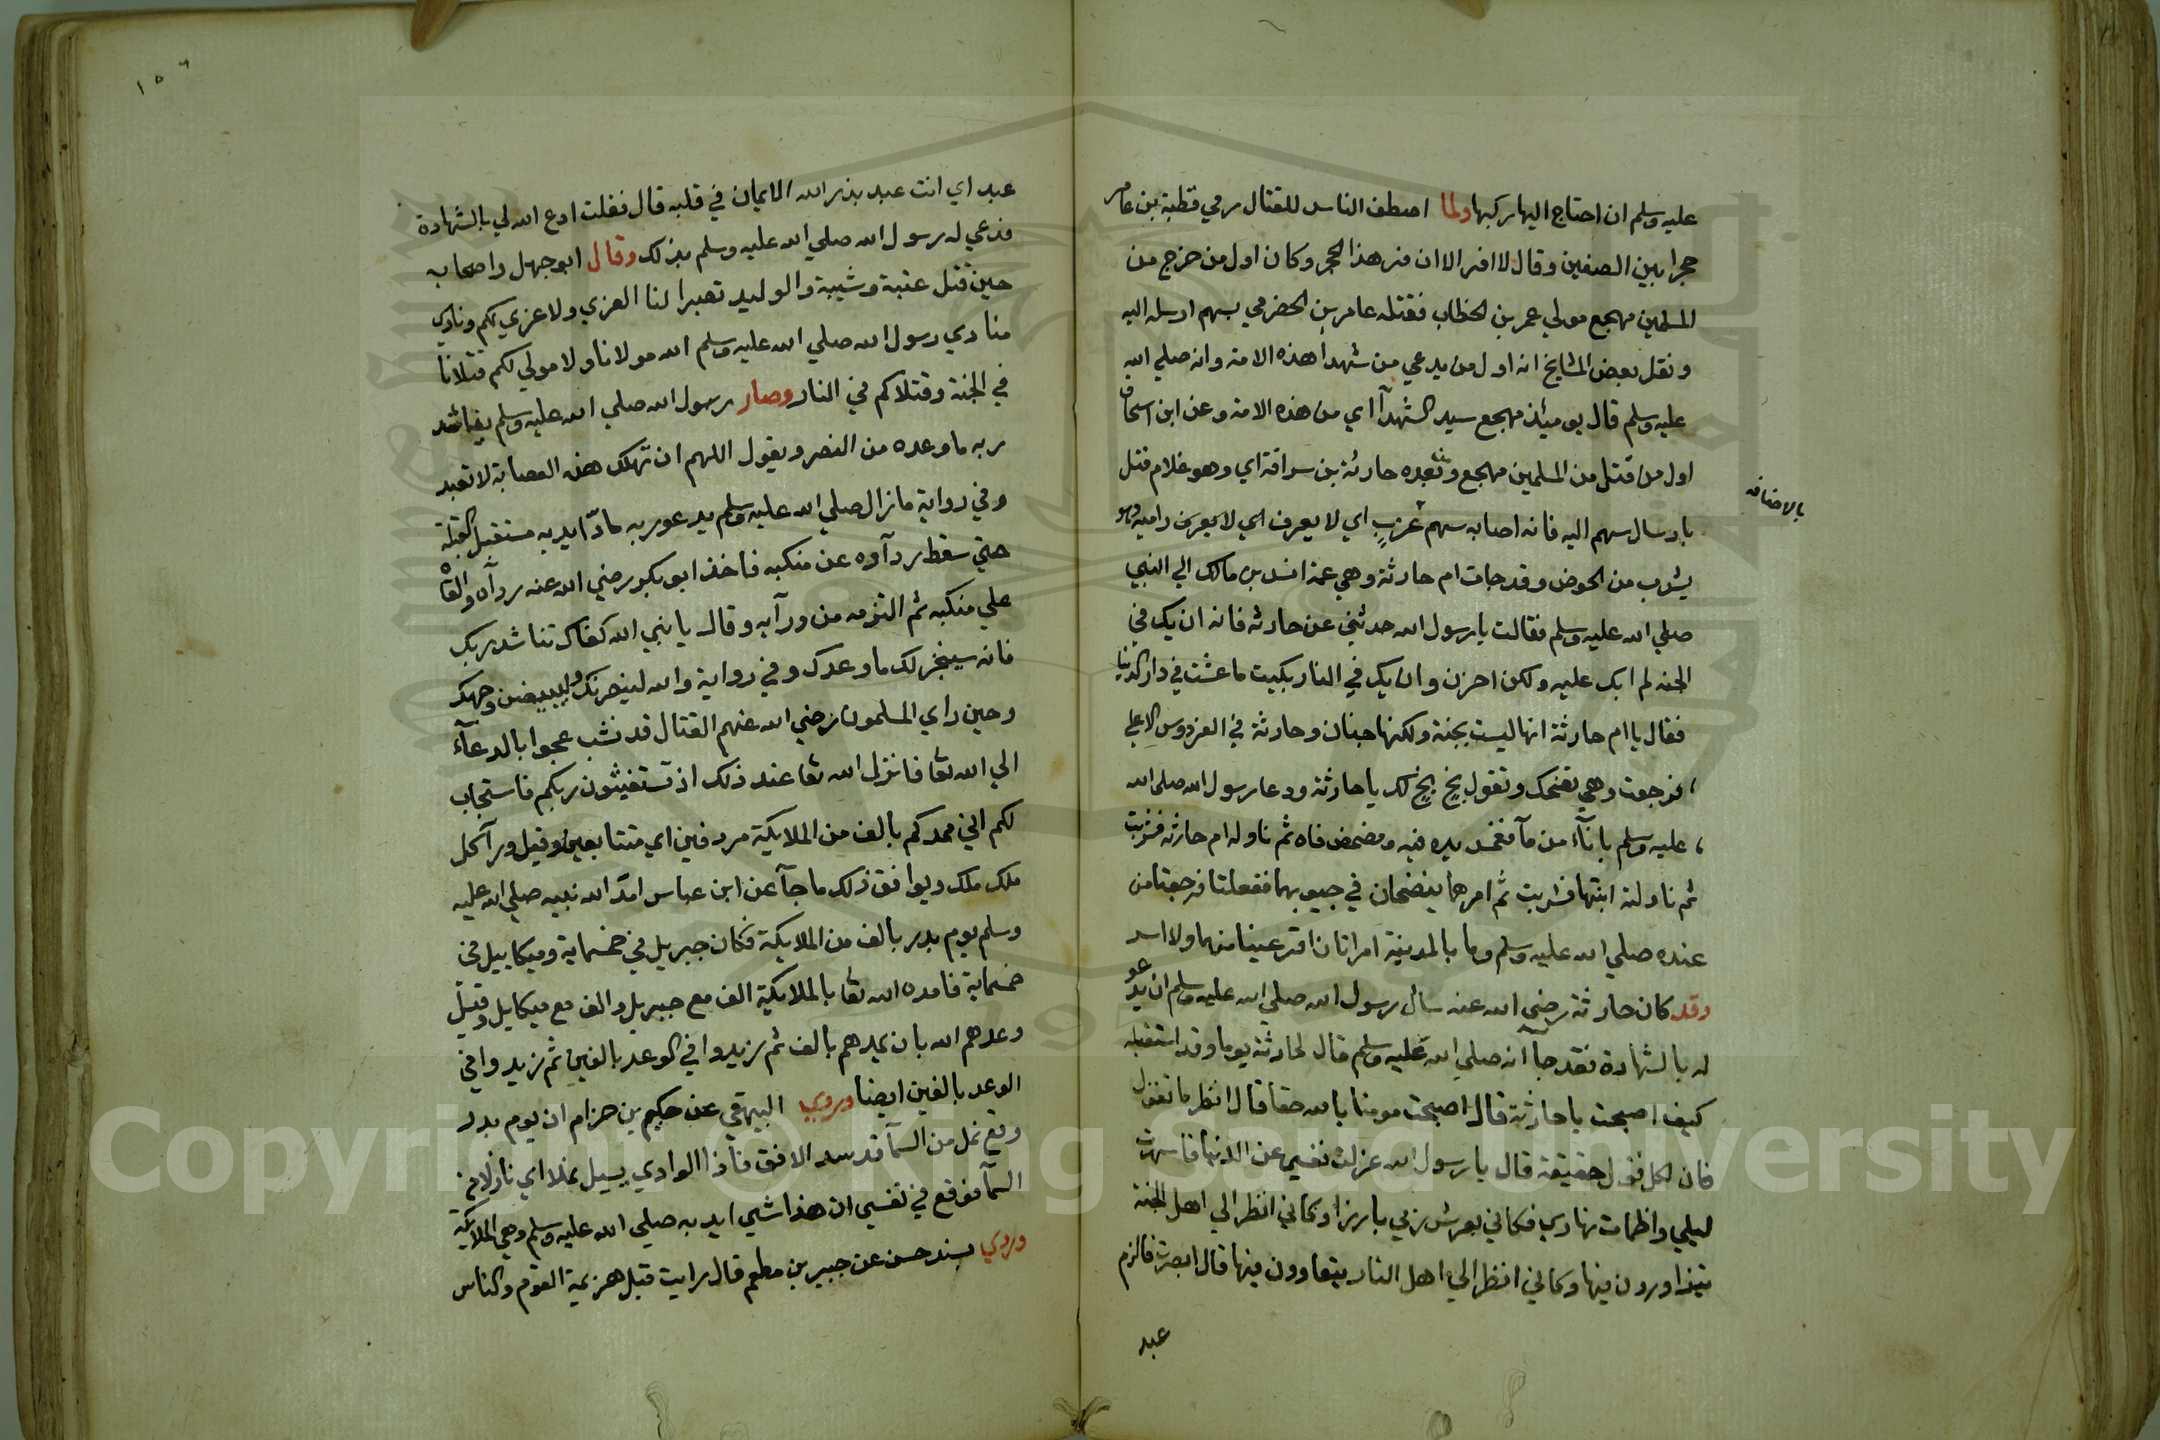 عليه وسلم ان احتاج اليها ركبها ولما اصطف الناس للقتال رمي قطبة بن عامر
حجرا بين الصفين وقال لا افر الا ان فر هذا الحجر وكان اول من خرج من
المسلمين مهجع مولي عمر بن الخطاب فقتله عامر بن الحضرمي بسهم ارسله اليه
ونقل بعض المشايخ انه اول من يدعي من شهدا هذه الامة وانه صلي الله
عليه وسلم قال يوميئذ مهجع سيد الشهدآ اي من هذه الامة وعن ابن اسحاق
اول من قتل من المسلمين مهجع وبعده حارثة بن سراقة اي وهو غلام قتل
بالاضافه
بارسال سهم اليه فانه اصابه سهم غربٍ اي لا يعرف اي لا يعرف راميه وهو
يشرب من الحوض وقد جات ام حارثة وهي عمة انس بن مالك الي النبي
صلي الله عليه وسلم فقالت يا رسول الله حدثني عن حارثه فانه ان يك في
الجنه لم ابك عليه ولكن احزن وان يك في النار بكيت ما عشت في دار الدنيا
فقال يا ام حارثة انها ليست بجنة ولكنها جنان وحارثة في الفردوس الاعلي
فرجعت وهي تضحك وتقول بخٍ بخٍ لك يا حارثة ودعا رسول الله صلي الله
عليه وسلم بانآء من مآ فغمس يده فيه ومضمض فاه ثم ناوله ام حارثه فشربت
ثم ناولته ابنتها فشربت ثم امرهما ينضحان في جيوبهما ففعلتا فرجعتا من
عنده صلي الله عليه وسلم وما بالمدينة امراتان اقر عينا منهما ولا اسر
وقد كان حارثة رضي الله عنه سال رسول الله صلي الله عليه وسلم ان يدعو
له بالشهادة فقد جآ انه صلي الله عليه وسلم قال لحارثة يوما وقد استقبله
كيف اصبحت يا حارثة قال اصبحت مومنا بالله حقا قال انظر ما تقول
فان لكل قول حقيقة قال يا رسول الله عزلت نفسي عن الدنيا فاسهرت
ليلي واظمات نهاري فكاني بعرش ربي بارزا وكاني انظر الي اهل الجنة
يتزاورون فيها وكاني انظر الي اهل النار يتعاوون فيها قال ابصرت فالزم
عبد
١٥٦
عبد اي انت عبد بذر الله الايمان في قلبه قال فقلت ادع الله لي بالشهادة
فدعي له رسول الله صلي الله عليه وسلم بذلك وقال ابو جهل واصحابه
حين قتل عتبة وشيبة والوليد تصبرا لنا العزي ولا عزي لكم ونادي
منادي رسول الله صلي الله عليه وسلم الله مولانا ولا مولي لكم قتلانا
في الجنة وقتلاكم في النار وصار رسول الله صلي الله عليه وسلم يناشد
ربه ما وعده من النصر ويقول اللهم ان تهلك هذه العصابة لا تعبد
وفي رواية مازال صلي الله عليه وسلم يدعو ربه مادّا يديه مستقبل القبلة
حتي سقط ردآوه عن منكبه فاخذ ابو بكر رضي الله عنه ردآه والقاه
علي منكبه ثم التزمه من ورآيه وقال يا نبي الله كفاك تناشد ربك
فانه سينجز لك ما وعدك وفي رواية والله لينصرنك وليبيضن وجهك
وحين راي المسلمون رضي الله عنهم القتال قد نشب عجوا بالدعآء
الي الله تعا فانزل الله تعا عند ذلك اذ تستغيثون ربكم فاستجاب
لكم اني ممدكم بالف من الملايكة مردفين اي متتابعين وقيل ورآ كل
ملك ملك ويوافق ذلك ما جآ عن ابن عباس امدّ الله نبيه صلي الله عليه
وسلم يوم بدر بالف من الملايكة فكان جبريل في خمسماية وميكاييل في
خمسماية فامده الله تعا بالملايكة الف مع جبريل والف مع ميكايل وقيل
وعدهم الله بان يمدهم بالف ثم زيدوا في الوعد بالفين ثم زيدوا في
الوعد بالفين ايضا وروي البيهقي عن حكيم بن حزام ان يوم بدر
وقع نمل من السمآ قد سد الافق فاذا الوادي يسيل نملا اي نازلا من
السمآ فوقع في نفسي ان هذا شي ايد به صلي الله عليه وسلم وهي الملايكة
وروي بسند حسن عن جبير بن مطعم قال رايت قبل هزيمة القوم والناس
Copyright © King Saud University